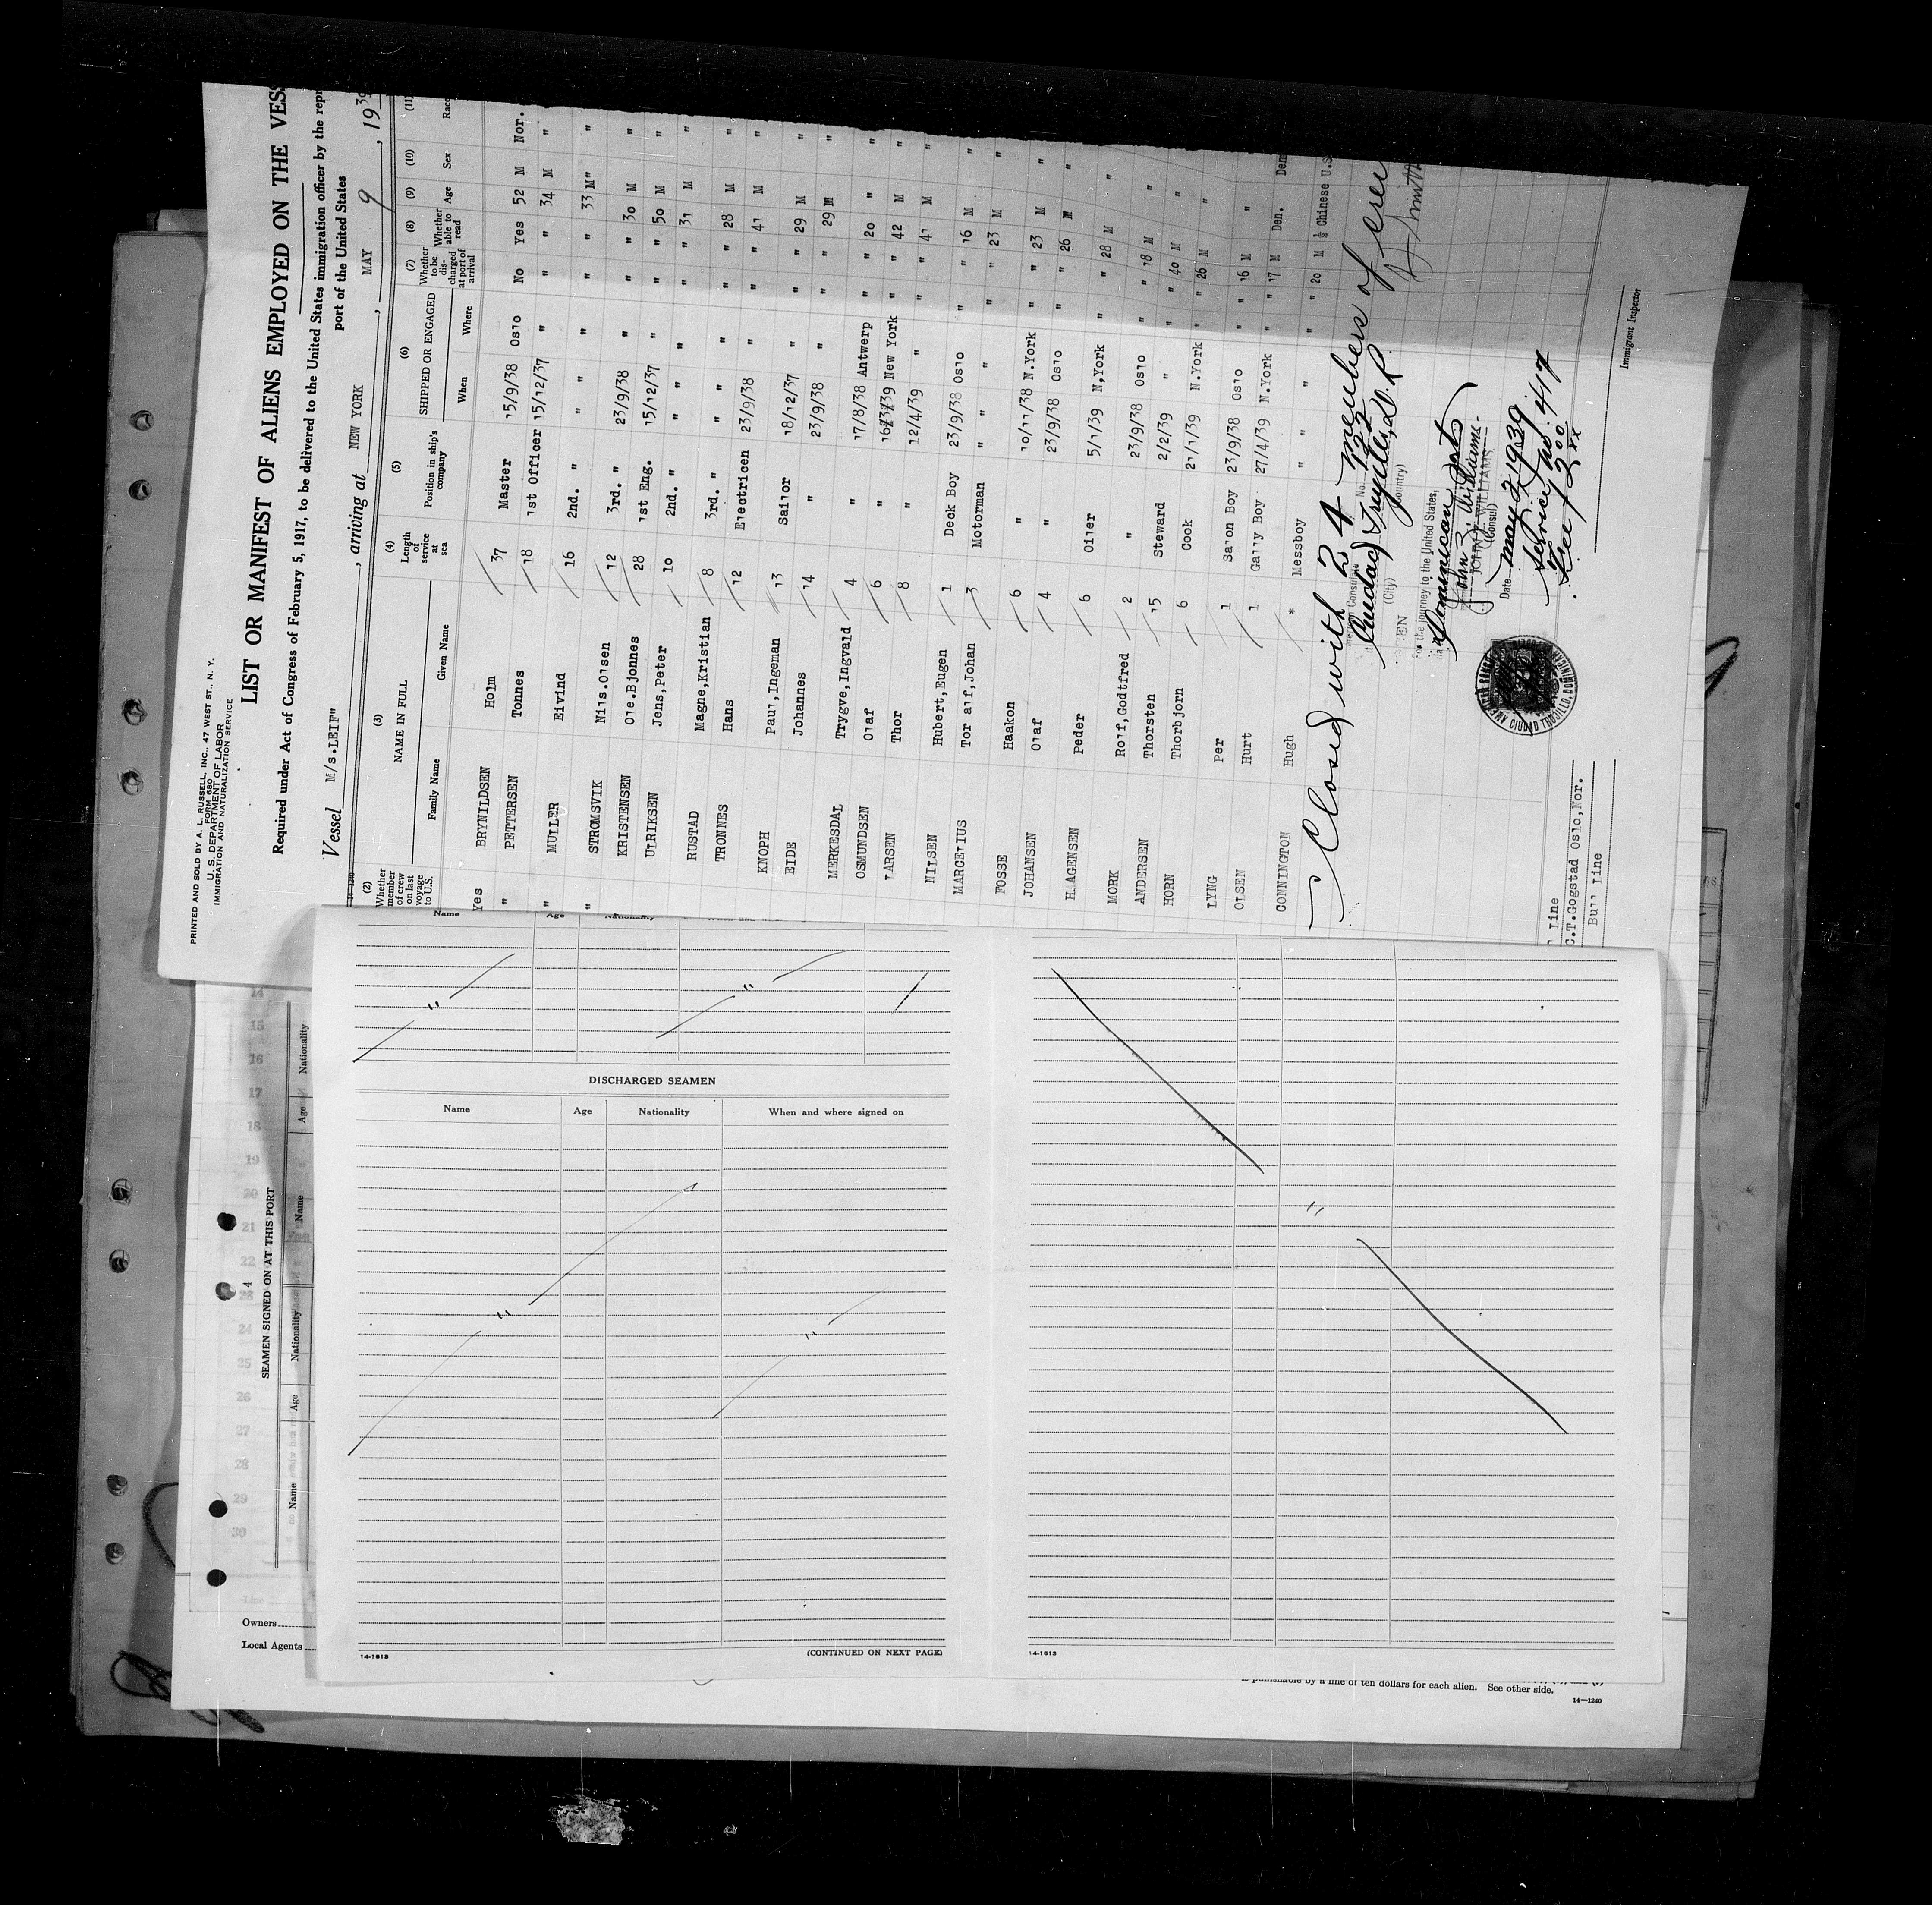 PRINTED AND SOLD BY A. L. RUSSELL, INC., 47 WEST ST., N. Y.
FORM 680
U. S. DEPARTMENT OF LABOR
IMMIGRATION AND NATURALIZATION SERVICE
LIST OR MANIFEST OF ALIENS EMPLOYED ON THE
Required under Act of Congress of February 5, 1917, to be delivered to the United States immigration officer by the
port of the United States
Vessel M/s.LEIF" , arriving at NEW YORK , MAY 9 , 1939
(2) (3) (4) (5) (6) (7) (8) (9) (10) (11)
Whether member of crew on last voyage to U.S. NAME IN FULL Length of service at sea Position in ship's company SHIPPED OR ENGAGED Whether to be discharged at port of arrival Whether able to read Age Sex Race
Family Name Given Name When Where
Yes BRYNILDSEN Holm 37 Master 15/9/38 Oslo No Yes 52 M Nor.
" PETTERSEN Tonnes 18 1st Officer 15/12/37 " " " 34 M "
" MULLER Eivind 16 2nd. " " " " " 33 M" "
" STROMSVIK Nils.Olsen 12 3rd. " 23/9/38 " " " 30 M "
KRISTENSEN Ole.Bjonnes 28 1st Eng. 15/12/37 " " " 50 M "
ULRIKSEN Jens,Peter 10 2nd. " " " " " 31 M "
RUSTAD Magne,Kristian 8 3rd. " " " " " 28 M "
TRONNES Hans 12 Electricen 23/9/38 " " " 41 M "
KNOPH Paul,Ingeman 13 Sailor 18/12/37 " " " 29 M "
EIDE Johannes 14 " 23/9/38 " " " 29 M "
MERKESDAL Trygve,Ingvald 4 " 17/8/38 Antwerp " " 20 " "
OSMUNDSEN Olaf 6 " New York " " 42 M "
LARSEN Thor 8 " 12/4/39 " " " 41 M "
NILSEN Hubert,Eugen 1 Deck Boy 23/9/38 Oslo " " 16 M "
MARCELIUS Tor alf,Johan 3 Motorman " " " " 23 M "
FOSSE Haakon 6 " 10/11/38 N.York " " 23 M "
JOHANSEN Olaf 4 " 23/9/38 Oslo " " 26 M "
HAAGENSEN Peder 6 Oiler 5/1/39 N,York " " 28 M "
MORK Rolf,Godtfred 2 " 23/9/38 Oslo " " 18 M "
ANDERSEN Thorsten 15 Steward 2/2/39 " " " 40 M "
HORN Thorbjorn 6 Cook 21/1/39 N.York " " 26 M "
LYNG Per 1 Salon Boy 23/9/38 Oslo " " 16 M "
OLSEN Hurt 1 Gally Boy 27/4/39 N.York " " 17 M Den.
CONNINGTON Hugh * Messboy " " " " 20 M ½ Chinese U.S.
Closed with 24 members of crew
No. 122
Ciudad Trujillo, D. R.
(City) (Country)
For the journey to the United States,
via Dominican Ports
John Z. Williams
JOHN Z. WILLIAMS
(Consul)
Date May 2, 1939
Service No. 417
Fee $ 2.00
Immigrant Inspector
Line
C.T.Gogstad Oslo,Nor.
Bull Line
Name Age Nationality
DISCHARGED SEAMEN
Name Age Nationality When and where signed on
14-1613
(CONTINUED ON NEXT PAGE)
14-1613
SEAMEN SIGNED ON AT THIS PORT
Name Age Nationality Name Age Nationality
14
15
16
17
18
19
20
21
22
23
24
25
26
27
28
29
30
Owners
Local Agents
is punishable by a fine of ten dollars for each alien. See other side.
14—1240